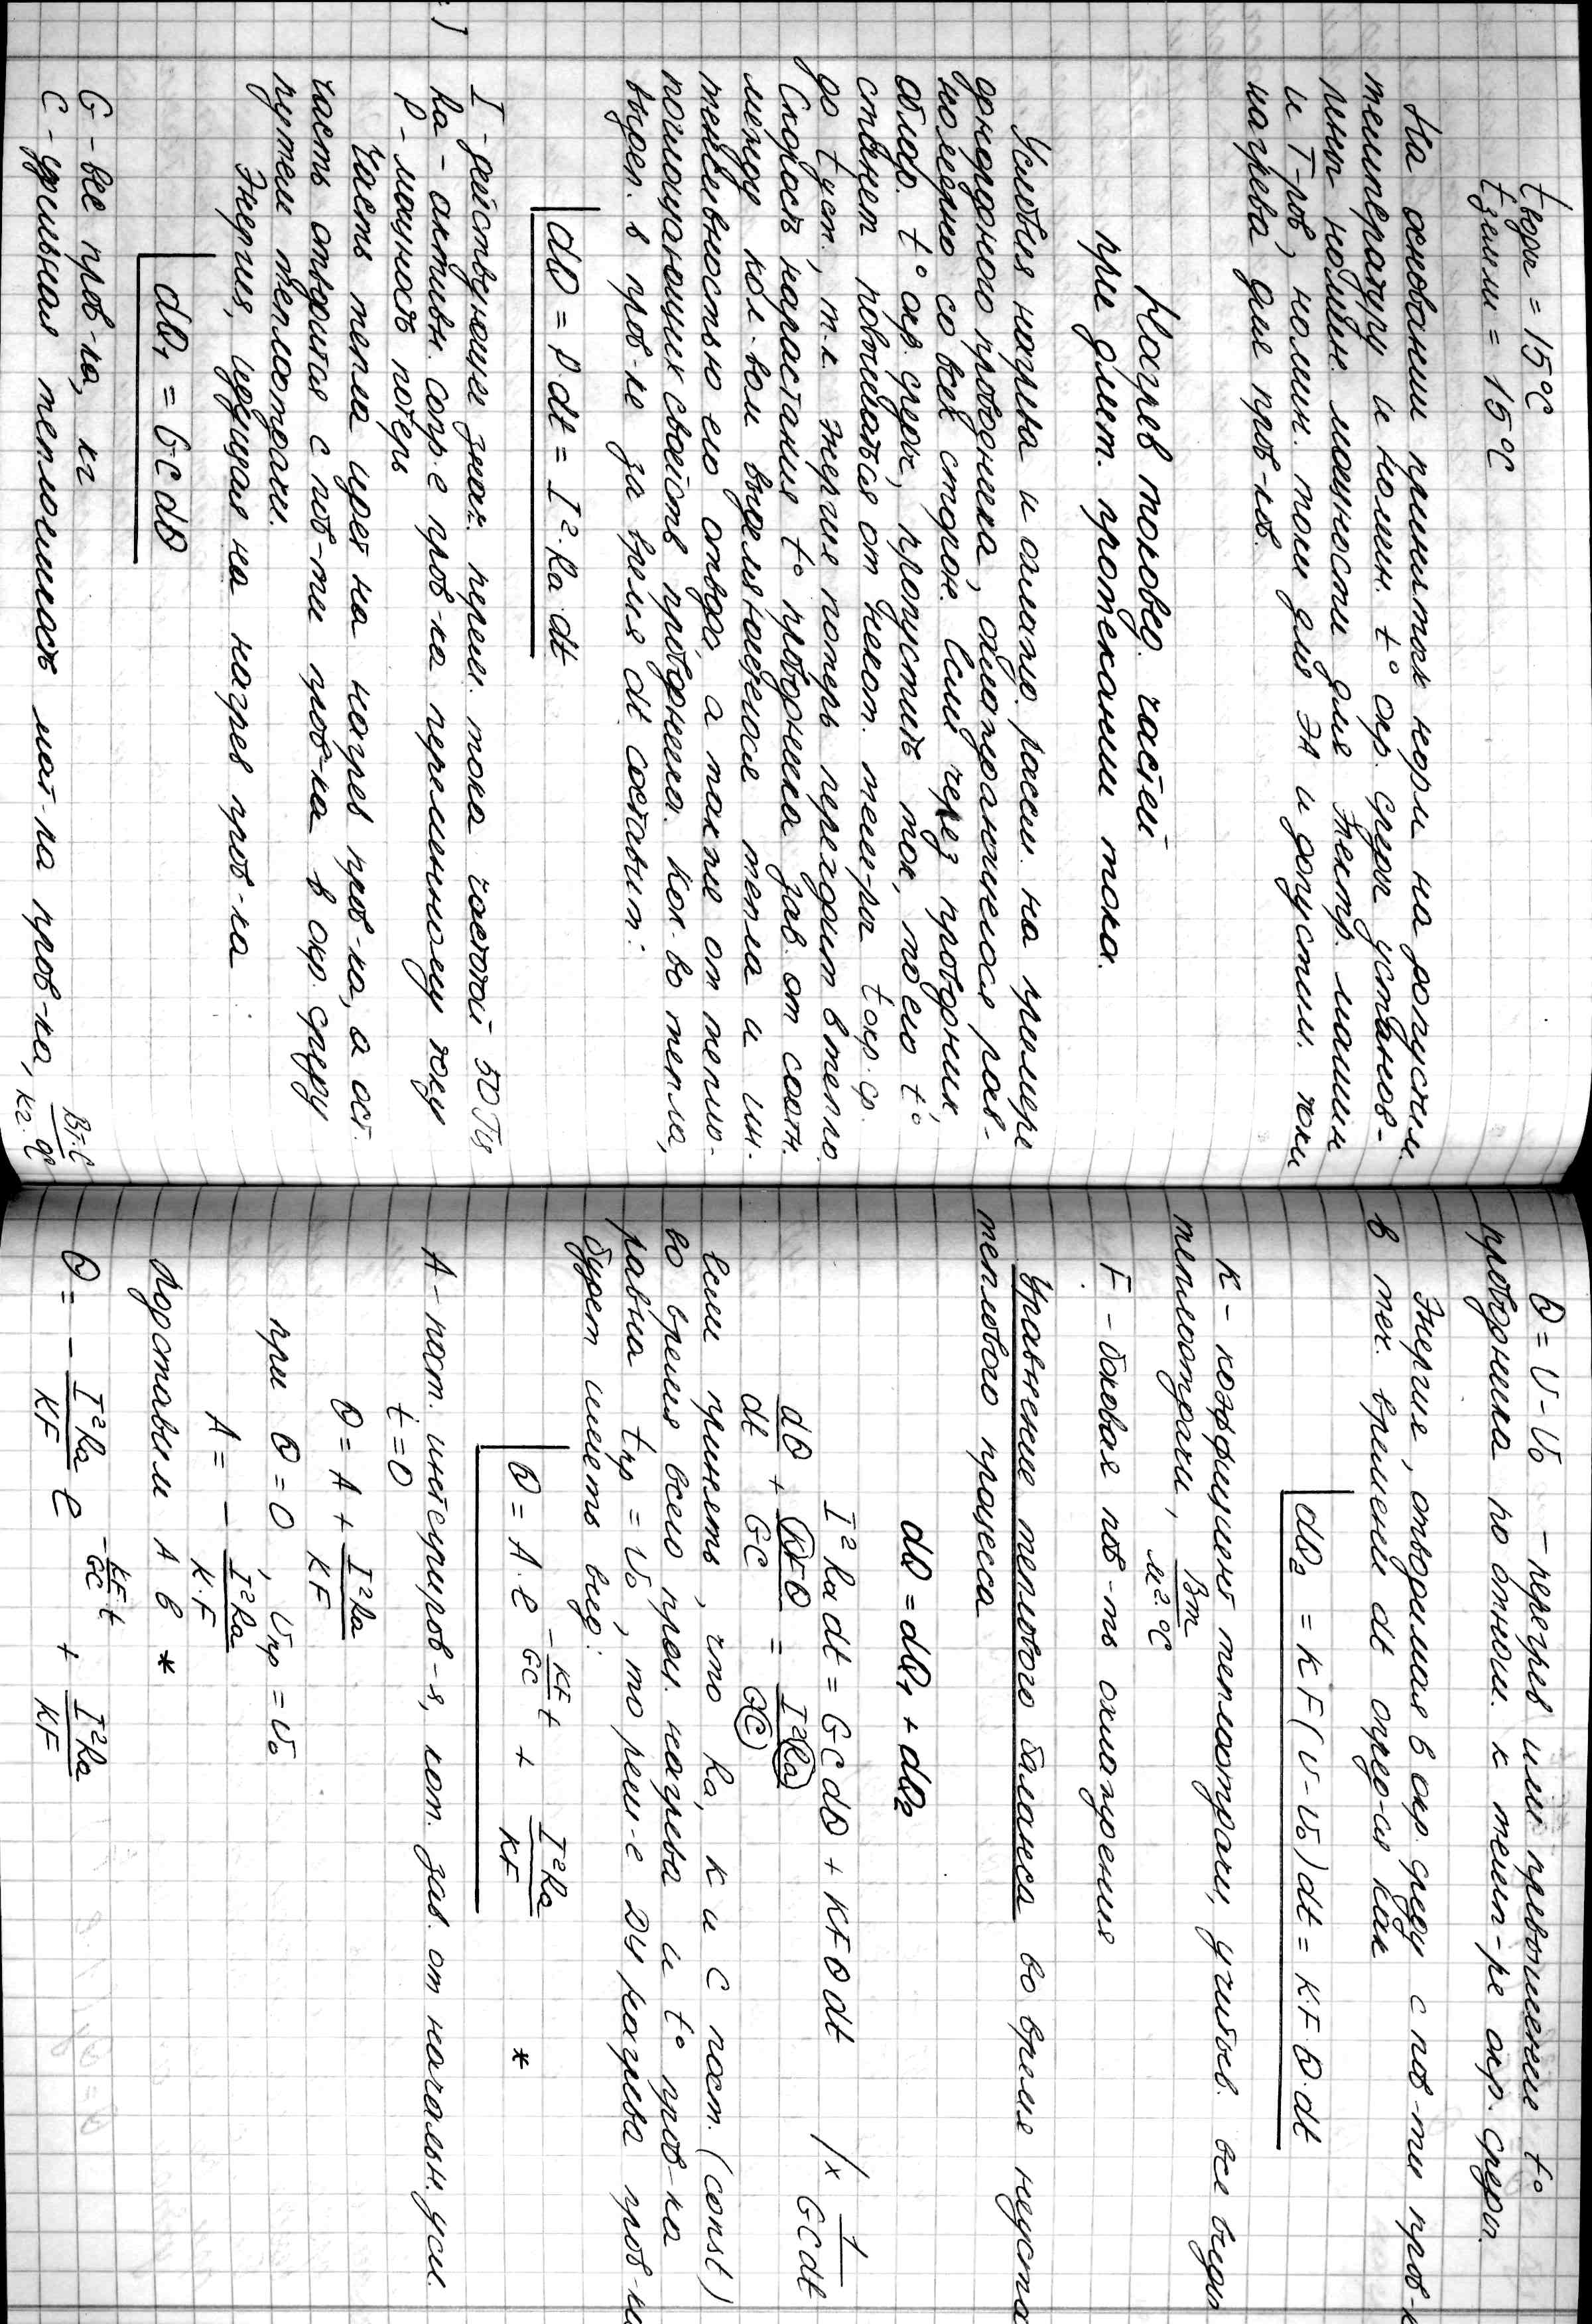 tводы = 15°С
tземли = 15°С
На основании принятых норм на допустим.
температуру и номин. t° окр. среды установ-
лены номин. мощности для электр. машин
и Т-ров, номин. токи для ЭА и допустим. токи
нагрева для пров-ков.
Нагрев токовед. частей
при длит. протекании тока.
Условия нагрева и охлажд. рассм. на примере
однородного проводника, охлаждающегося рав-
номерно со всех сторон. Если через проводник,
облад. t° окр. среды, пропустить ток, то его t°
станет повышаться от некот. темп-ры tокр.ср.
до tуст., т.к. энергия потерь переходит в тепло.
Скорость нарастания t° проводника зав. от соотн.
между кол-вом выделяющегося тепла и ин-
тенсивностью его отвода, а также от тепло-
поглощающих свойств проводника. Кол-во тепла,
выдел. в пров-ке за время dt составит:
dQ = P dt = I²·Ra dt
I - действующее знач. перем. тока частотой 50 Гц
Ra - активн. сопр-е пров-ка переменному току
P - мощность потерь
Часть тепла идет на нагрев пров-ка, а ост.
часть отводится с пов-ти пров-ка в окр. среду
путем теплоотдачи.
Энергия, идущая на нагрев пров-ка:
dQ₁ = GC dθ
G - вес пров-ка, кг
C - удельная теплоемкость мат-ла пров-ка, Вт·с/кг·°С
θ = υ - υ₀ - перегрев или превышение t°
проводника по отнош. к темп-ре окр. среды.
Энергия, отводимая в окр. среду с пов-ти пров-к
в теч. времени dt опред-ся как
dQ₂ = KF(υ - υ₀)dt = KF θ·dt
K - коэффициент теплоотдачи, учитыв. все виды
теплоотдачи, Вт/м²·°С
F - боковая пов-ть охлаждения
Уравнение теплового баланса во время неуста
теплового процесса
dQ = dQ₁ + dQ₂
I² Ra dt = GC dθ + KF θ dt /× 1/GCdt
dθ/dt + KFθ/GC = I²Ra/GC
Если принять, что Ra, K и C пост. (const)
во время всего проц. нагрева и t° пров-ка
равна tпр = υ₀, то реш-е ДУ нагрева пров-ка
будет иметь вид:
θ = A·e^(-KF/GC t) + I²Ra/KF *
A - пост. интегриров-я, кот. зав. от начальн. усл.
t = 0
θ = A + I²Ra/KF
при θ = 0, υпр = υ₀
A = - I²Ra/K·F
Подставим A в *
θ = - I²Ra/KF e^(-KF/GC·t) + I²Ra/KF